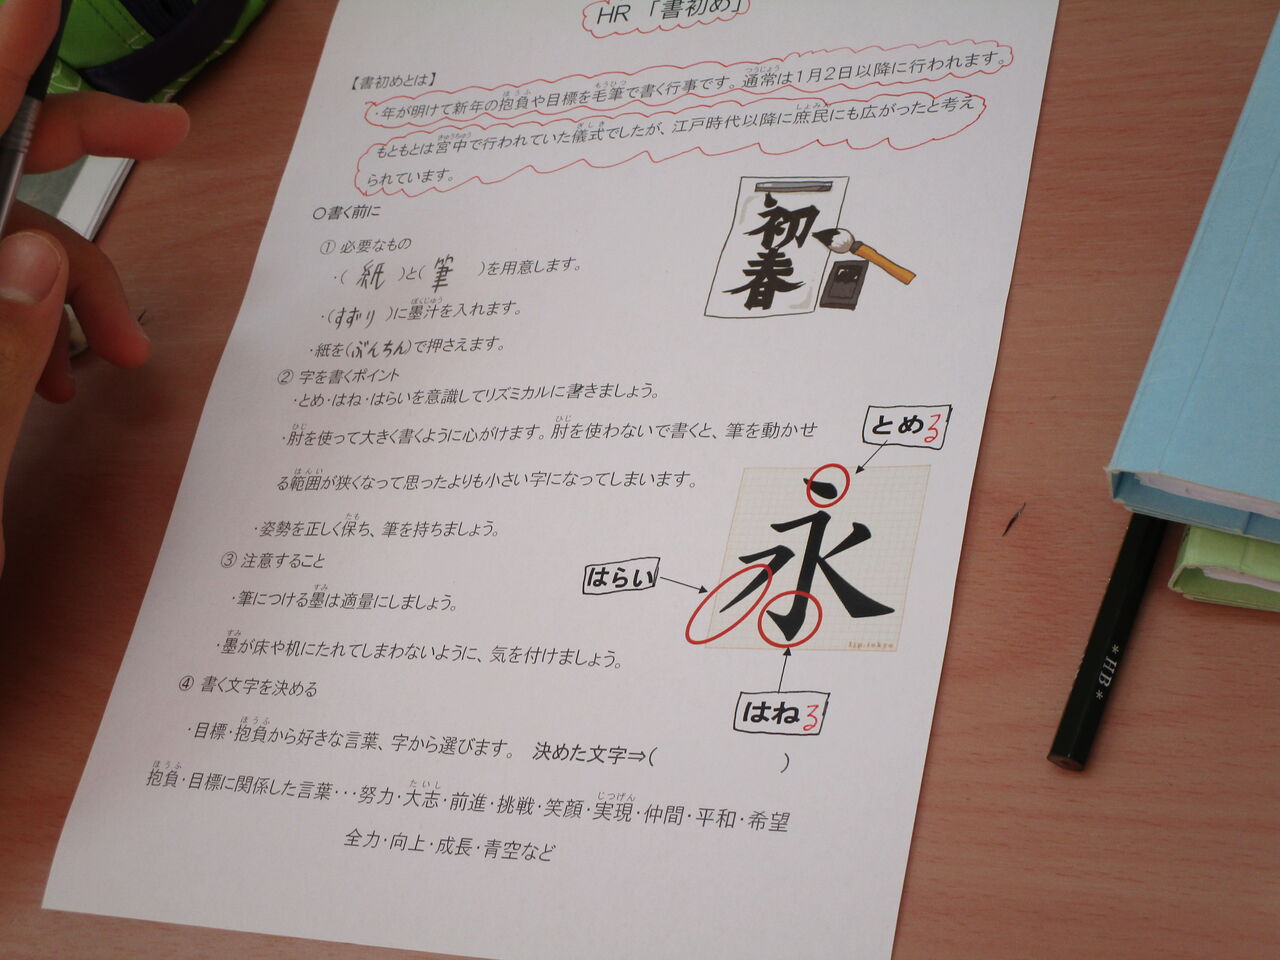 HR 「書初め」
【書初めとは】
・年が明けて新年の抱負や目標を毛筆で書く行事です。通常は1月2日以降に行われます。
もともとは宮中で行われていた儀式でしたが、江戸時代以降に庶民にも広がったと考え
られています。
○書く前に
① 必要なもの
・( 紙 )と( 筆 )を用意します。
・(すずり )に墨汁を入れます。
・紙を(ぶんちん)で押さえます。
初春
② 字を書くポイント
・とめ・はね・はらいを意識してリズミカルに書きましょう。
・肘を使って大きく書くように心がけます。肘を使わないで書くと、筆を動かせ
る範囲が狭くなって思ったよりも小さい字になってしまいます。
・姿勢を正しく保ち、筆を持ちましょう。
とめる
永
はらい
はねる
③ 注意すること
・筆につける墨は適量にしましょう。
・墨が床や机にたれてしまわないように、気を付けましょう。
④ 書く文字を決める
・目標・抱負から好きな言葉、字から選びます。 決めた文字⇒( )
抱負・目標に関係した言葉・・・努力・大志・前進・挑戦・笑顔・実現・仲間・平和・希望
全力・向上・成長・青空など
* HB *